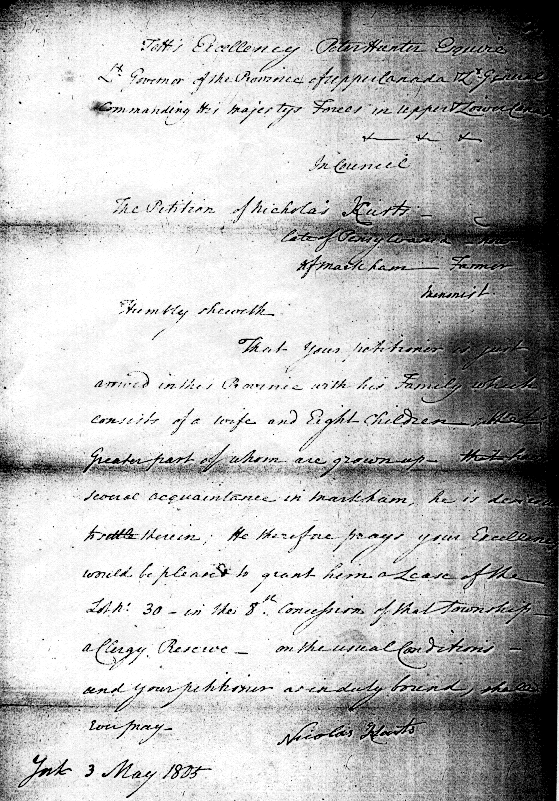 To His Excellency Peter Hunter Esquire
Lt. Governor of the Province of Upper Canada & Lt. General
Commanding His Majestys Forces in Upper & Lower Canada
& & &
In Council
The Petition of Nicholas Kurts
late of Pensylvania
of Markham Farmer
Menonist
Humbly sheweth
That your petitioner is just
arrived in this Province with his Family which
consists of a wife and Eight Children
Greater part of whom are grown up – that
several acquaintance in Markham, he is
to settle therein; He therefore prays your Excellency
would be pleased to grant him a Lease of the
Lot No. 30 – in the 8th. Concession of that Township
a Clergy Reserve – on the usual Conditions –
and your petitioner as in duty bound, shall
ever pray
Nicolas Kurts
York 3 May 1805